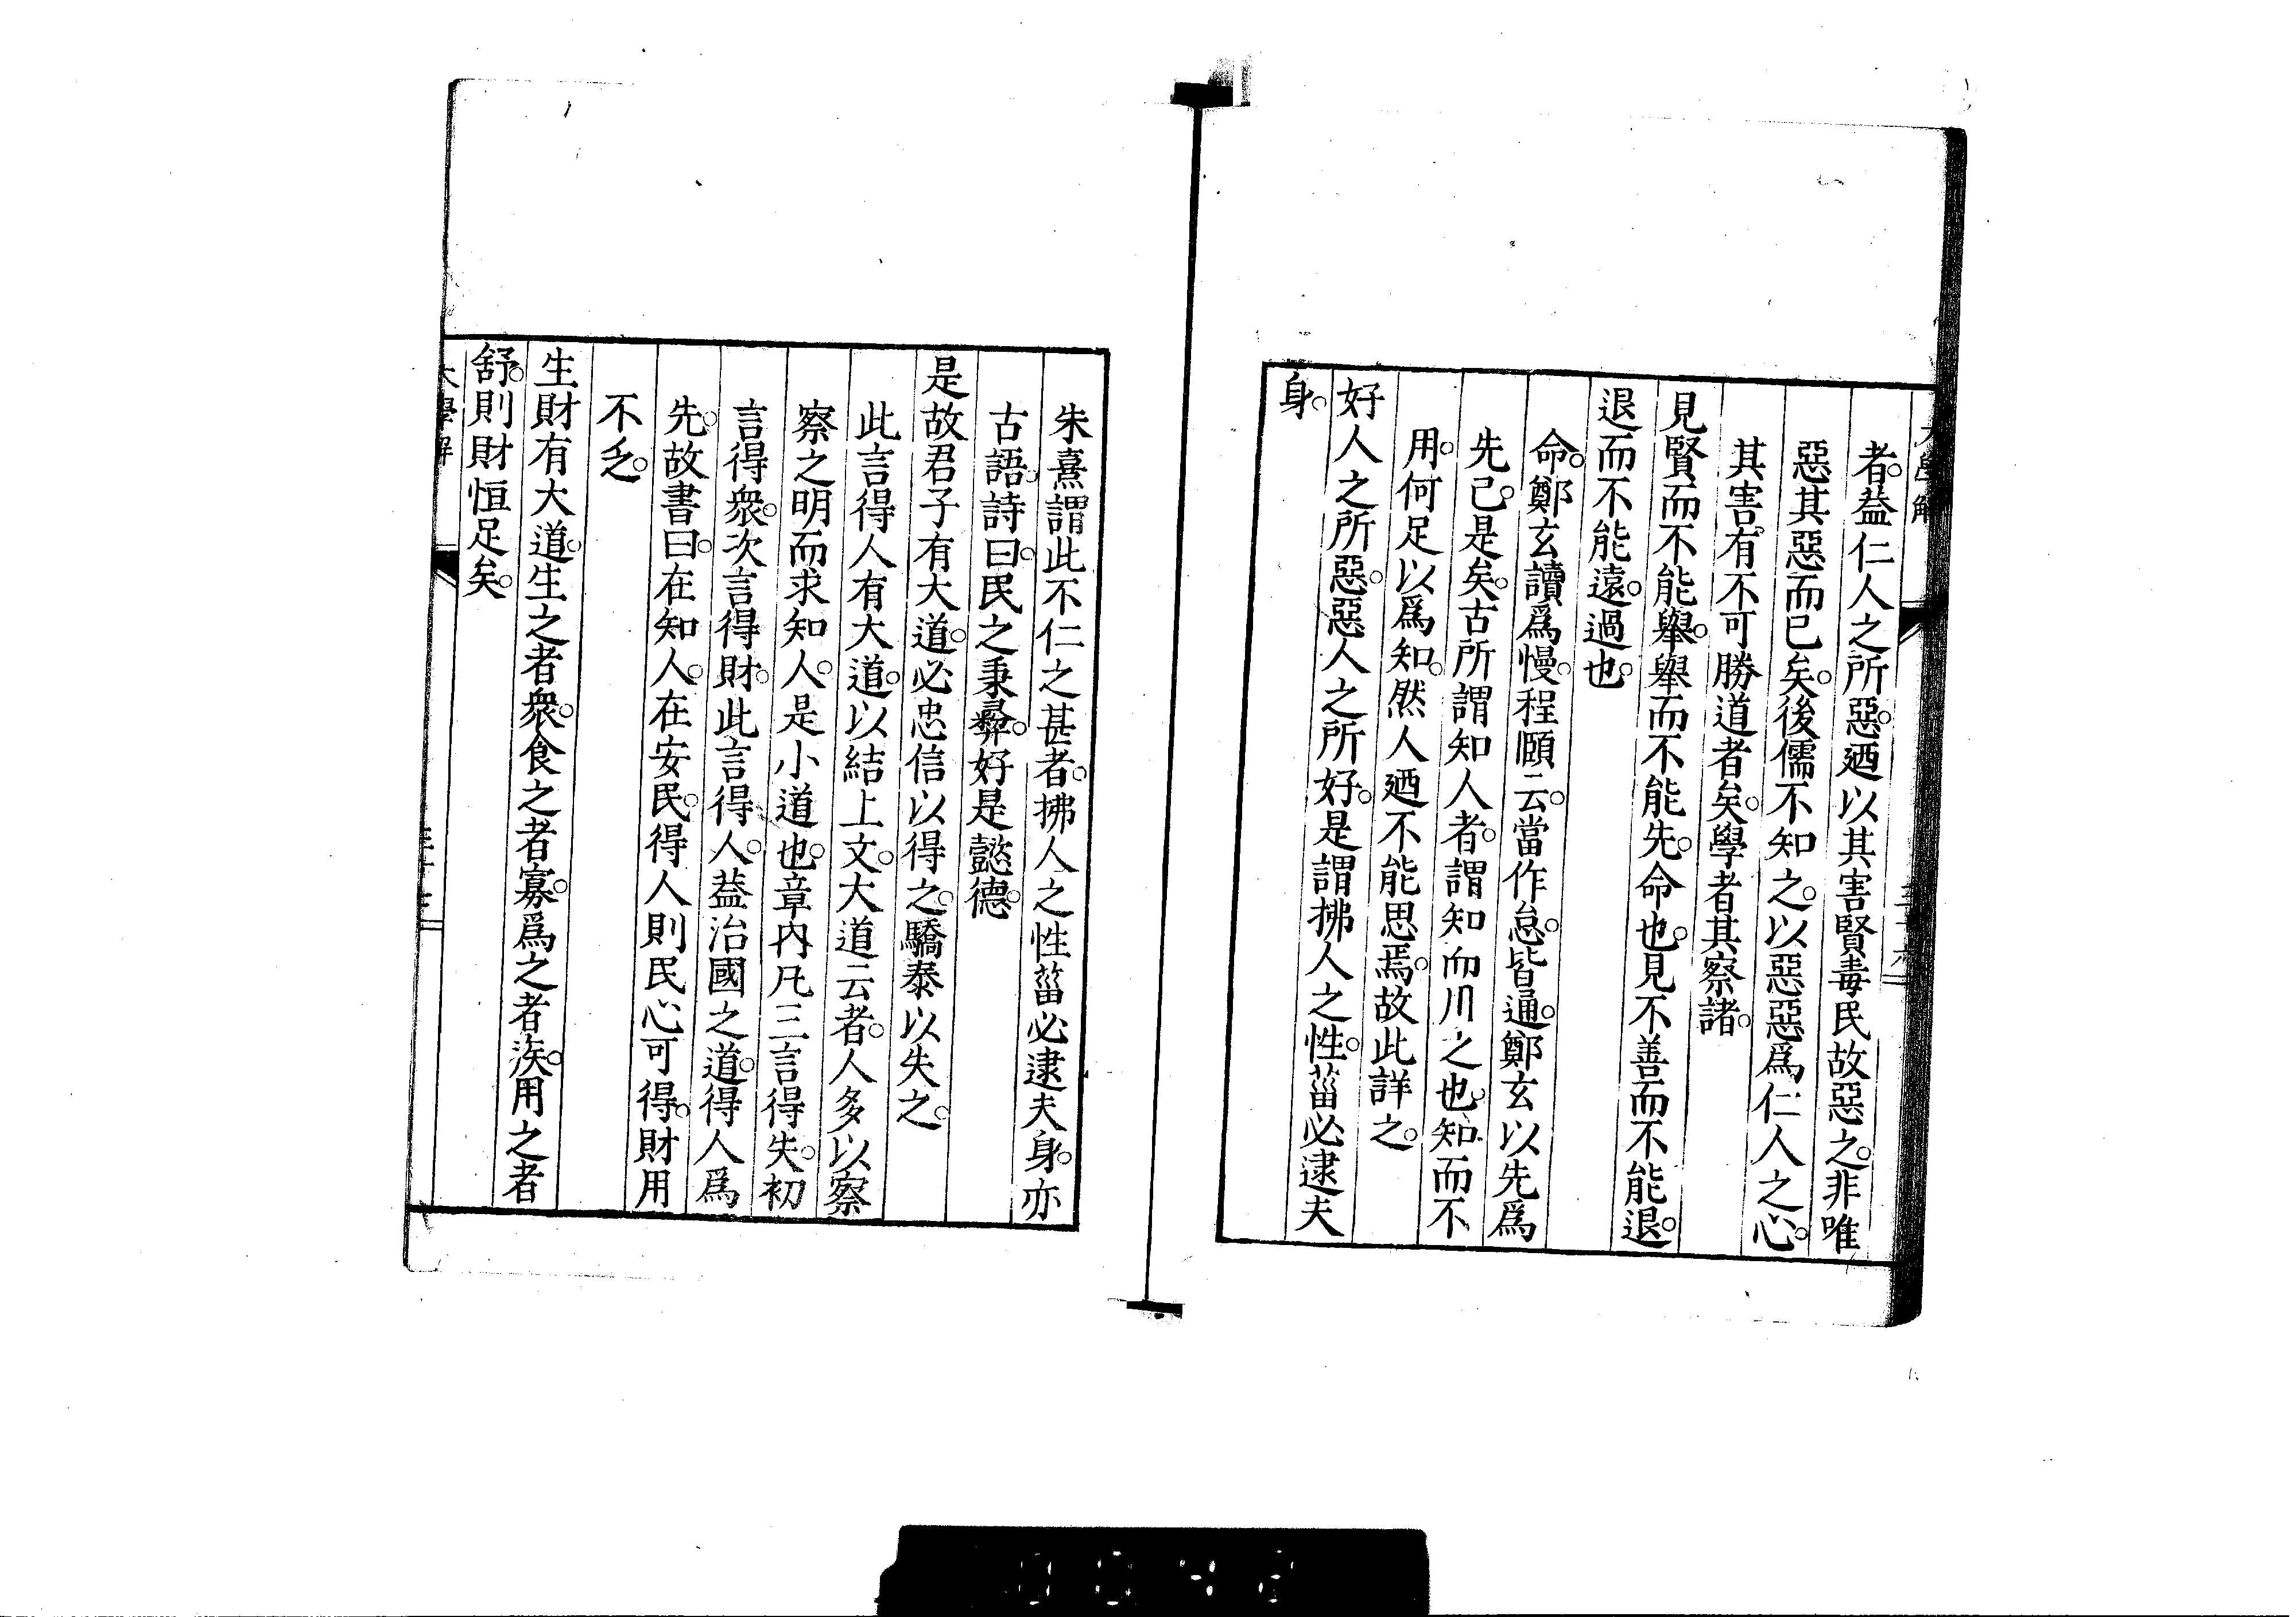 大學解
者。葢仁人之所惡。廼以其害賢毒民故惡之。非唯
惡其惡而已矣。後儒不知之。以惡惡爲仁人之心。
其害。有不可勝道者矣。學者其察諸。
見賢而不能舉。舉而不能先。命也。見不善而不能退。
退而不能遠。過也。
命。鄭玄讀爲慢。程頤云。當作怠。皆通。鄭玄以先爲
先己。是矣。古所謂知人者。謂知而用之也。知而不
用。何足以爲知。然人廼不能思焉。故此詳之。
好人之所惡。惡人之所好。是謂拂人之性。菑必逮夫
身。
朱熹謂此不仁之甚者。拂人之性菑必逮夫身。亦
古語。詩曰。民之秉彞。好是懿德。
是故君子有大道。必忠信以得之。驕泰以失之。
此言得人有大道。以結上文。大道云者。人多以察
察之明而求知人。是小道也。章內凡三言得失。初
言得衆。次言得財。此言得人。葢治國之道。得人爲
先。故書曰。在知人。在安民。得人則民心可得。財用
不乏。
生財有大道。生之者衆。食之者寡。爲之者疾。用之者
舒。則財恒足矣。
大學解